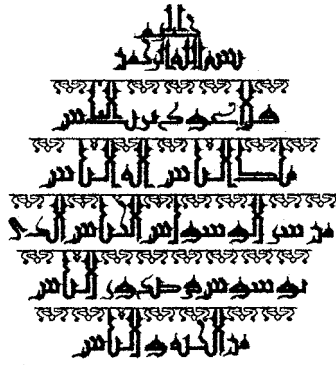 بسم الله الرحمن الرحيم
قل اعوذ برب الناس
ملك الناس اله الناس
من شر الوسواس الخناس الذي
يوسوس في صدور الناس
من الجنة و الناس